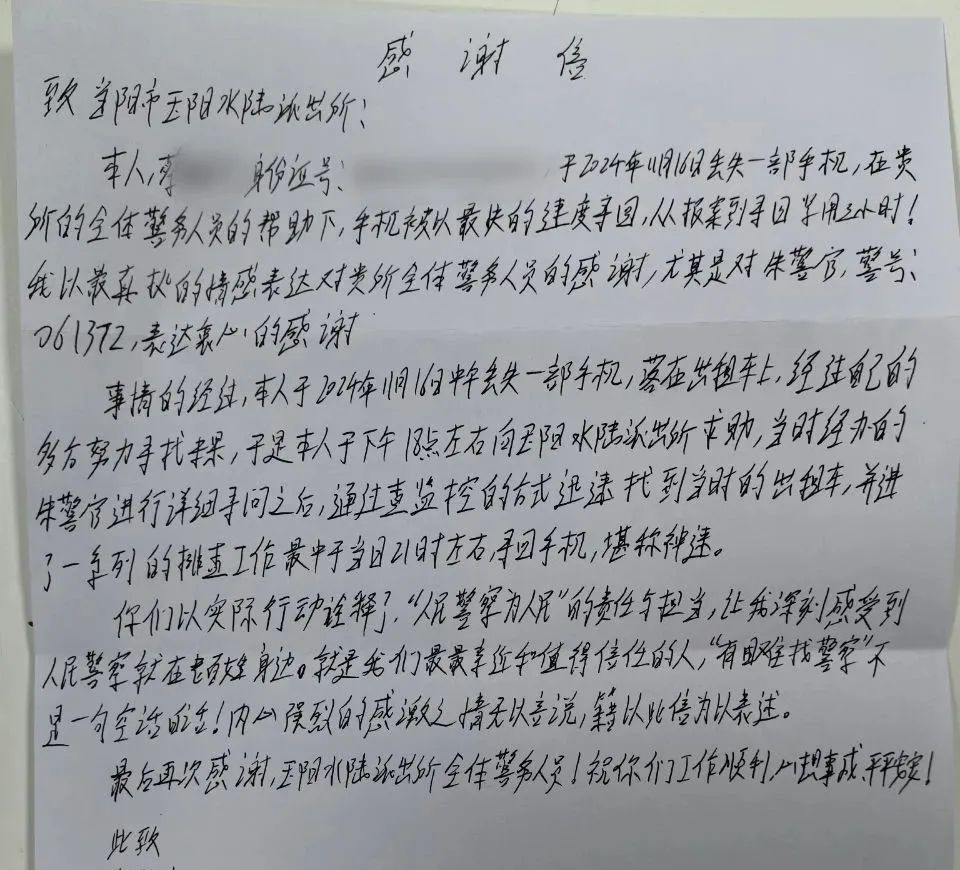 感谢信
致当阳市玉阳水陆派出所:
本人,身份证号: 于2024年11月16日丢失一部手机,在贵
所的全体警务人员的帮助下,手机被以最快的速度寻回,从报案到寻回单用3小时!
我以最真挚的情感表达对贵所全体警务人员的感谢,尤其是对朱警官,警号:
061372,表达衷心的感谢
事情的经过,本人于2024年11月16日中午丢失一部手机,落在出租车上,经过自己的
多方努力寻找未果,于是本人于下午18点左右向玉阳水陆派出所求助,当时经办的
朱警官进行详细寻问之后,通过查监控的方式迅速找到当时的出租车,并进
了一系列的排查工作最中于当日21时左右,寻回手机,堪称神速。
你们以实际行动诠释了,“人民警察为人民”的责任与担当,让我深刻感受到
人民警察就在身边。就是我们最最亲近和值得信任的人,“有困难找警察”不
是一句空话的话!内心强烈的感激之情无以言说,籍以此信为以表述。
最后再次感谢,玉阳水陆派出所全体警务人员!祝你们工作顺利,心想事成,平平安安!
此致